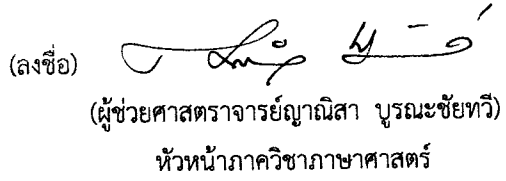 (ลงชื่อ)
(ผู้ช่วยศาสตราจารย์ญาณิสา บูรณะชัยทวี)
หัวหน้าภาควิชาภาษาศาสตร์